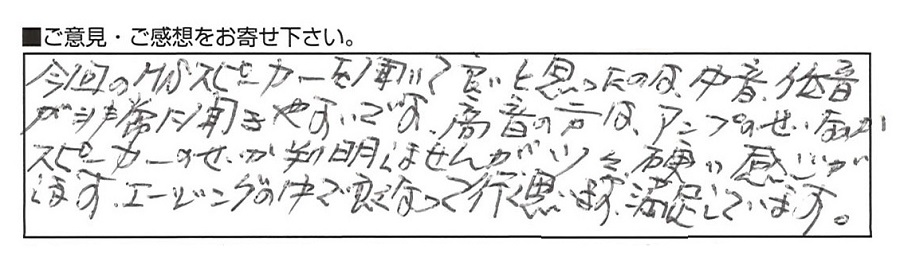 ■ご意見・ご感想をお寄せ下さい。
今回のスピーカーを聞いて良いと思ったのは、中音、低音
が非常に聞きやすいです。高音の声は、アンプのせい
スピーカーのせいか判明しませんが少々硬い感じが
します。エージングの中で良くなって行く思います。満足しています。